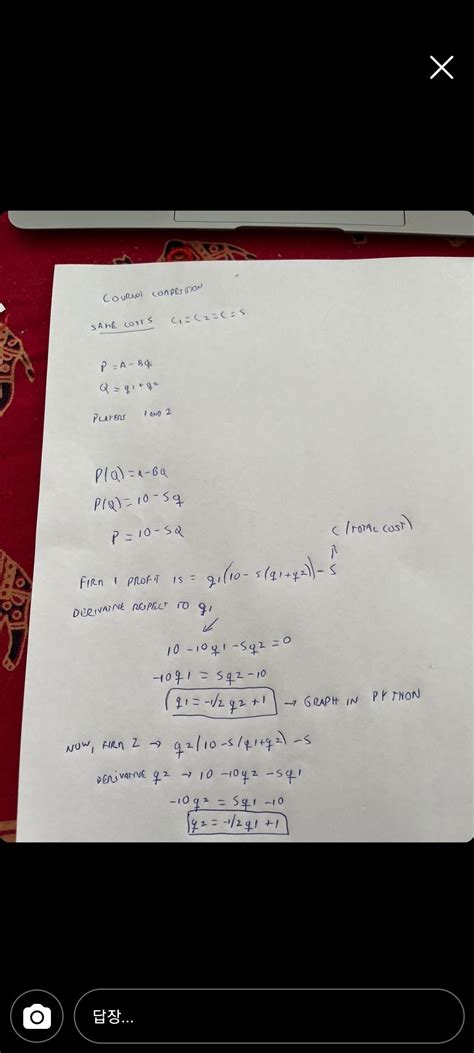 COURNOT COMPETITION
SAME COSTS C1=C2=C=5
P=A-Bq
Q=q1+q2
PLAYERS 1 and 2
P(Q)=A-BQ
P(Q)=10-5q
P=10-5Q
C (TOTAL COST)
FIRM 1 PROFIT IS = q1(10-5(q1+q2))-5
DERIVATIVE RESPECT TO q1
10-10q1-5q2=0
-10q1=5q2-10
q1=-1/2q2+1 → GRAPH IN PYTHON
NOW, FIRM 2 → q2(10-5(q1+q2)-5
DERIVATIVE q2 → 10-10q2-5q1
-10q2=5q1-10
q2=-1/2q1+1
답장...